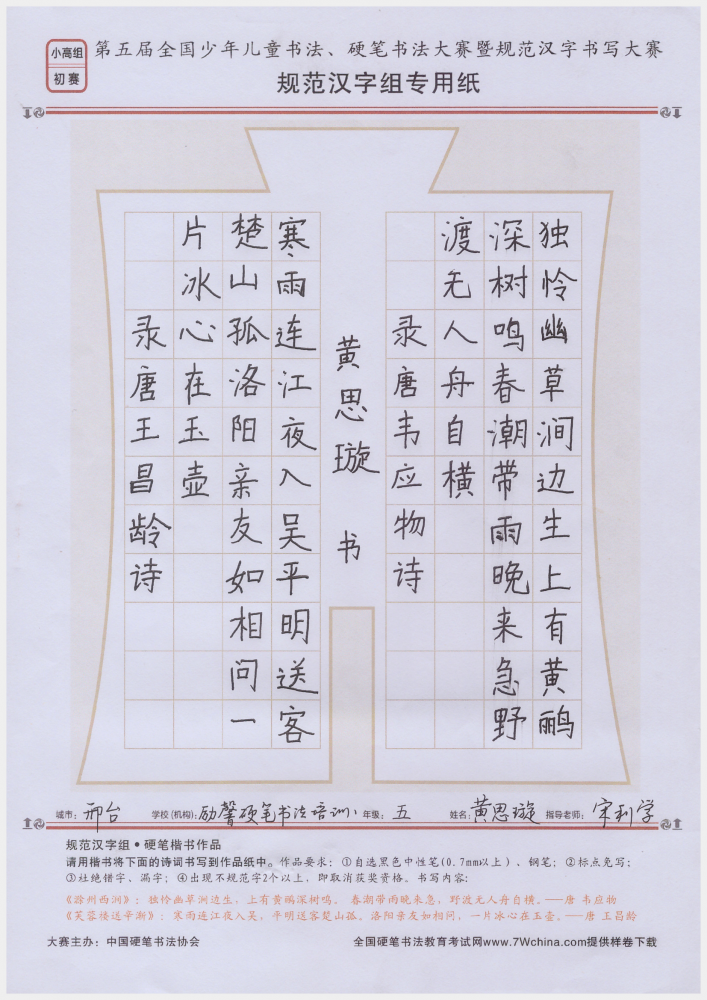 小高组
初赛
第五届全国少年儿童书法、硬笔书法大赛暨规范汉字书写大赛
规范汉字组专用纸
独怜幽草涧边生上有黄鹂
深树鸣春潮带雨晚来急野
渡无人舟自横
录唐韦应物诗
黄思璇 书
寒雨连江夜入吴平明送客
楚山孤洛阳亲友如相问一
片冰心在玉壶
录唐王昌龄诗
城市：邢台 学校(机构)：励馨硬笔书法培训 年级：五 姓名：黄思璇 指导老师：宋利学
规范汉字组•硬笔楷书作品
请用楷书将下面的诗词书写到作品纸中。作品要求：①自选黑色中性笔(0.7mm以上)、钢笔；②标点免写；
③杜绝错字、漏字；④出现不规范字2个以上，即取消获奖资格。书写内容：
《滁州西涧》：独怜幽草涧边生，上有黄鹂深树鸣。春潮带雨晚来急，野渡无人舟自横。——唐 韦应物
《芙蓉楼送辛渐》：寒雨连江夜入吴，平明送客楚山孤。洛阳亲友如相问，一片冰心在玉壶。——唐 王昌龄
大赛主办：中国硬笔书法协会 全国硬笔书法教育考试网www.7Wchina.com提供样卷下载